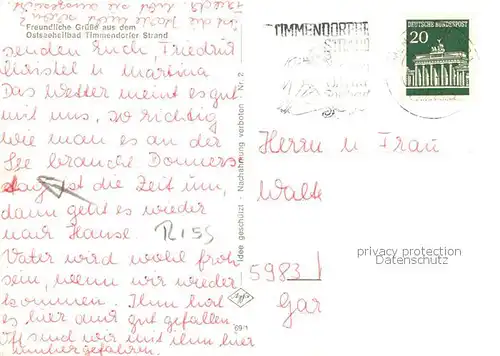 Freundliche Grüße aus dem
Ostseeheilbad Timmendorfer Strand
senden Euch, Friedrich
Christel u Martina
Das Wetter meint es gut
mit uns, so richtig
wie man es an der
See braucht Donners
tag ist die Zeit um,
dann geht es wieder
nach Hause. RISS
Vater wird wohl froh
sein, wenn wir wieder
kommen. Ihm hat
es hier auch gut gefallen.
Oft sind wir mit ihm hier
runtergefahren.
Idee geschützt · Nachahmung verboten · Nr. 2
Agfa
TIMMENDORFER
STRAND
DEUTSCHE BUNDESPOST
20
Herrn u Frau
Walte
5983
Gar
privacy protection
Datenschutz